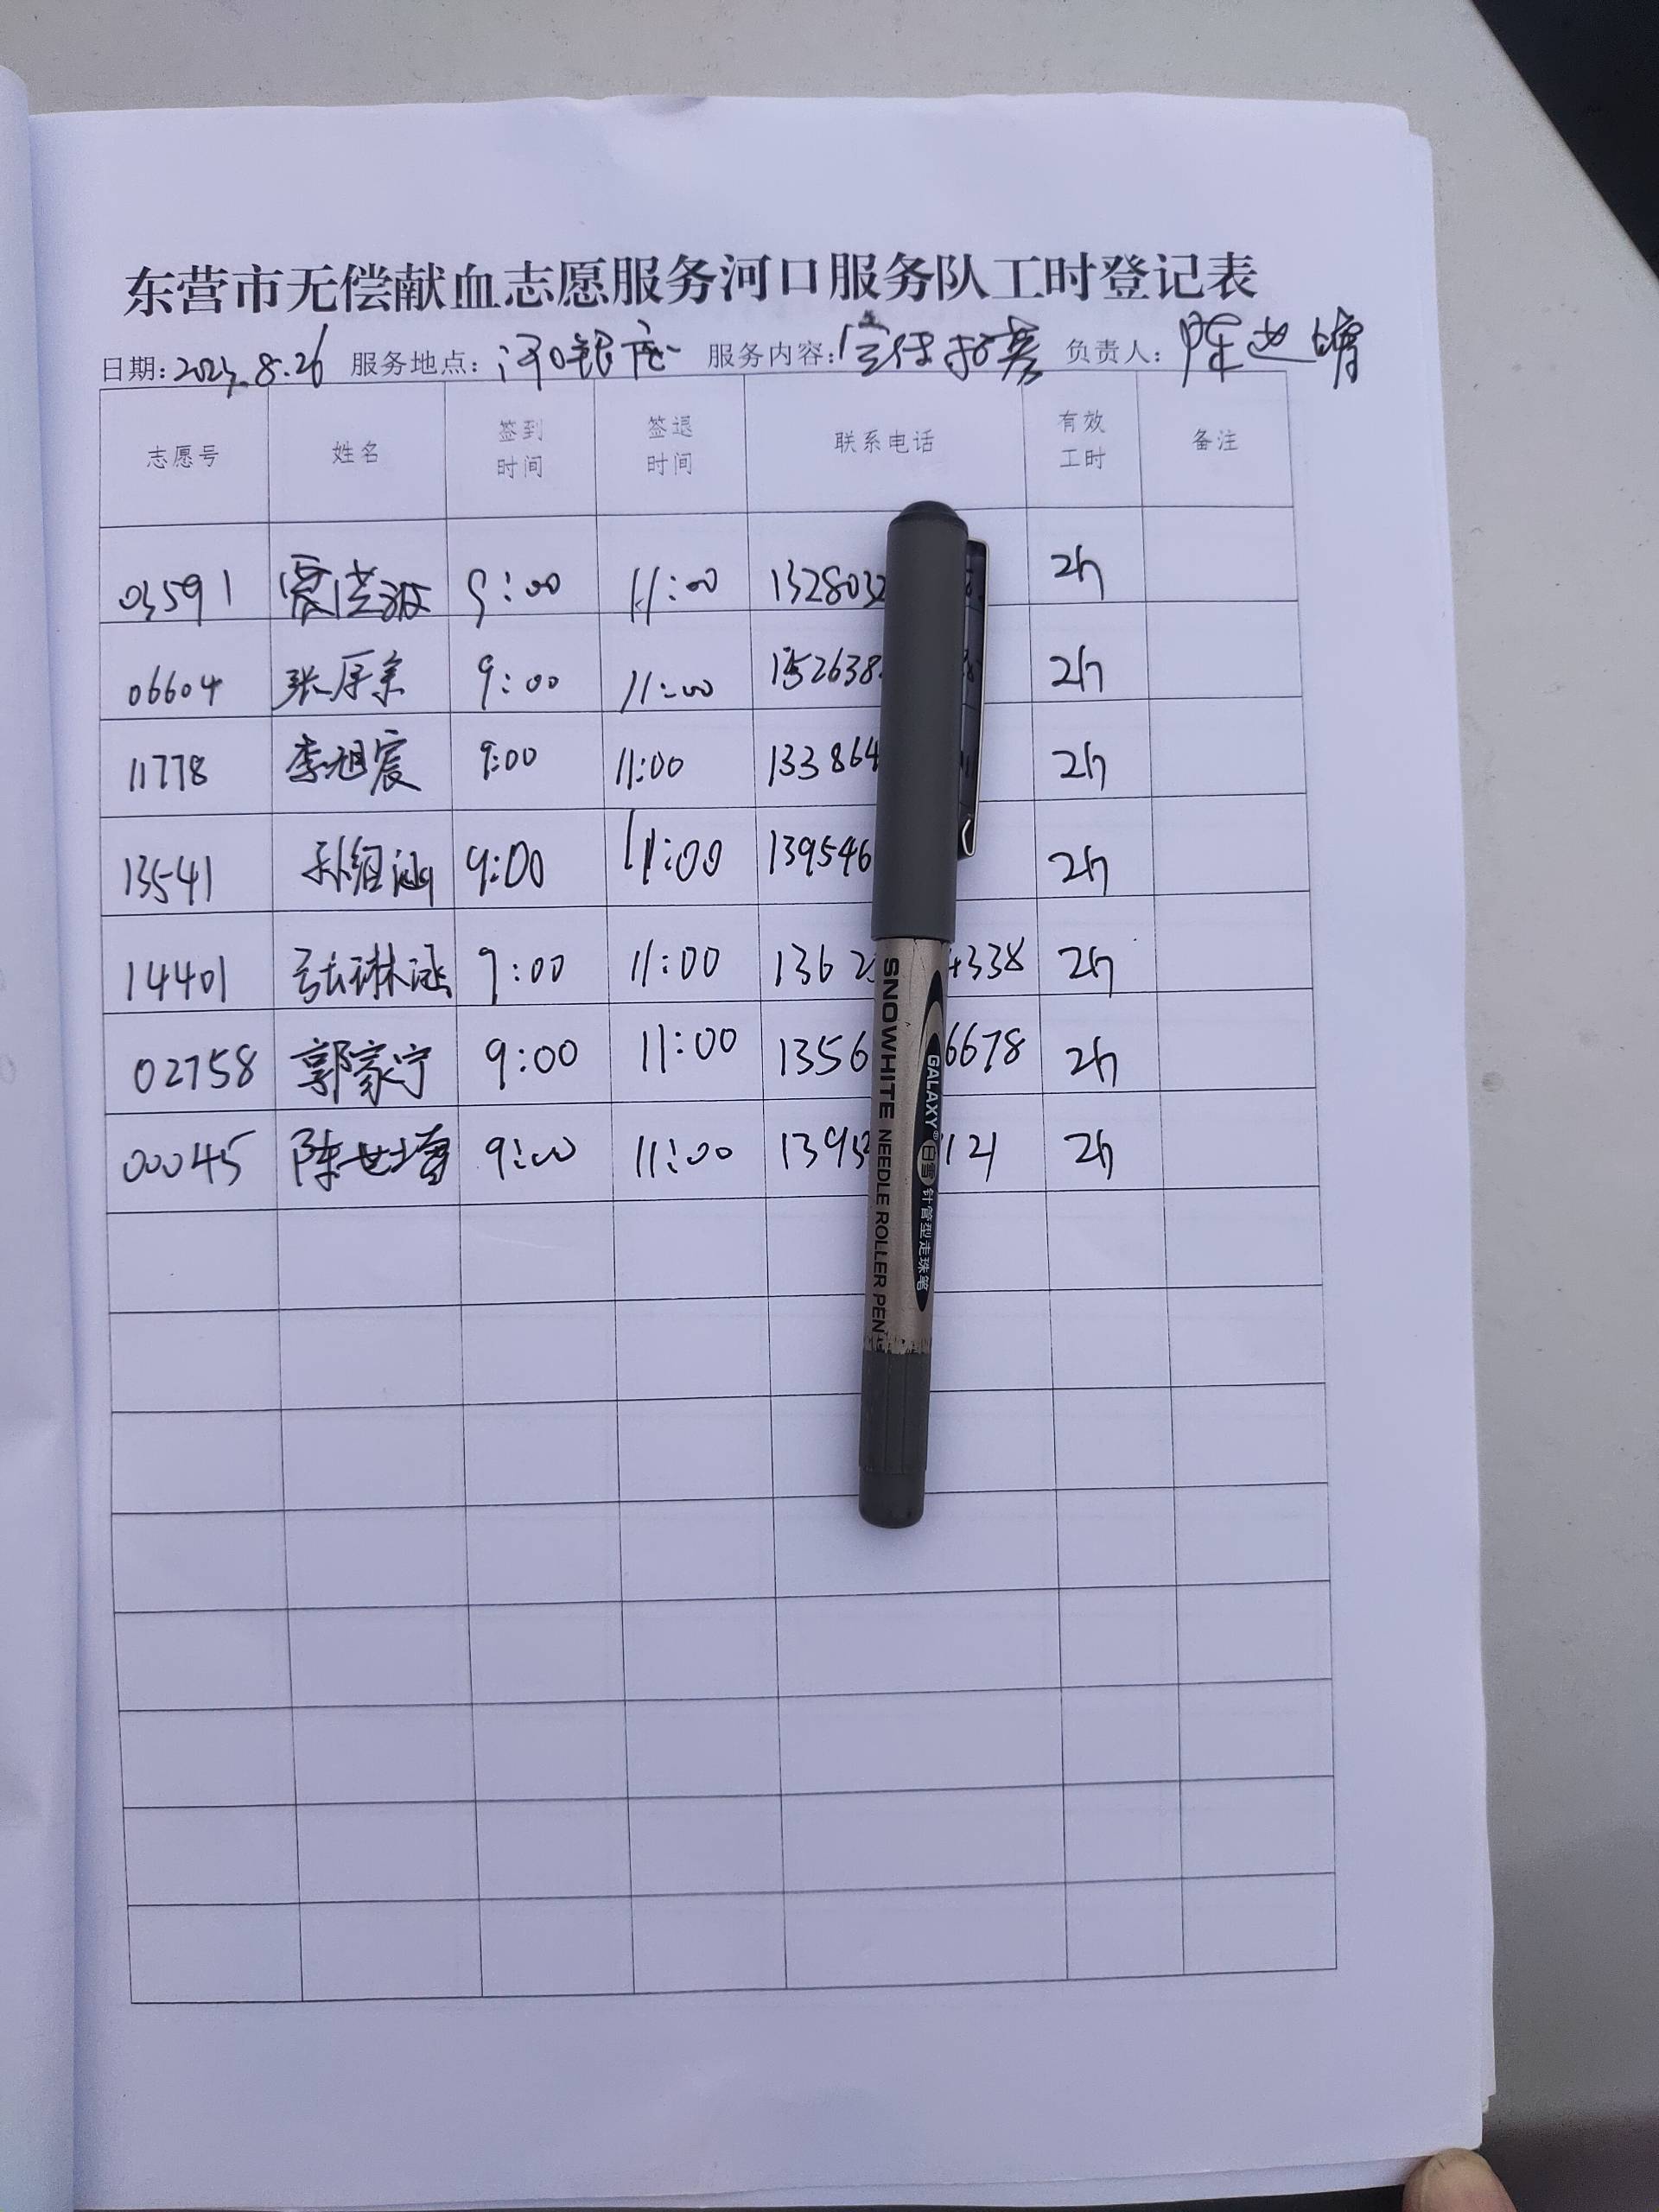 东营市无偿献血志愿服务河口服务队工时登记表
日期: 8.26 服务地点: 河口银座 服务内容: 宣传招募 负责人: 陈世增
志愿号 姓名 签到时间 签退时间 联系电话 有效工时 备注
03591 9:00 11:00 1328032 2h
06604 9:00 11:00 152638 2h
11778 李旭宸 9:00 11:00 133864 2h
13541 9:00 11:00 139546 2h
14401 张琳涵 9:00 11:00 1362 4338 2h
02758 郭家宁 9:00 11:00 1356 6678 2h
00045 陈世增 9:00 11:00 1395 121 2h
SNOWHITE NEEDLE ROLLER PEN
GALAXY® 白雪 针管型走珠笔